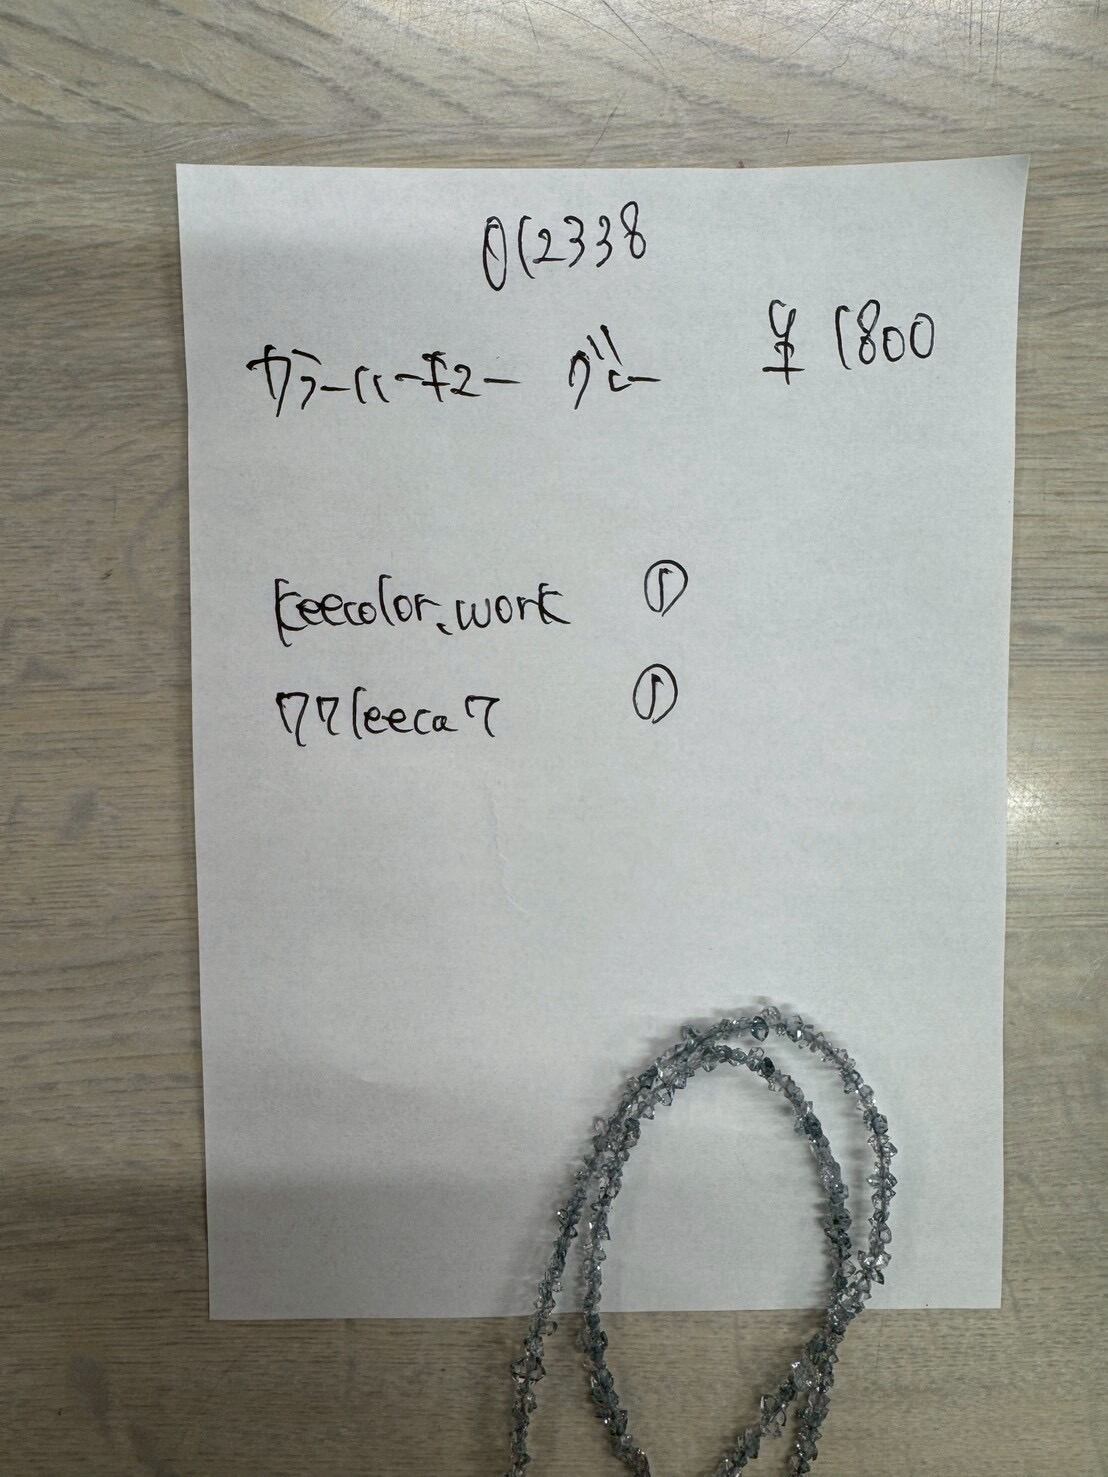 012338
カラーハーキマー グレー ¥1800
keecolor.work ①
77leeca7 ①